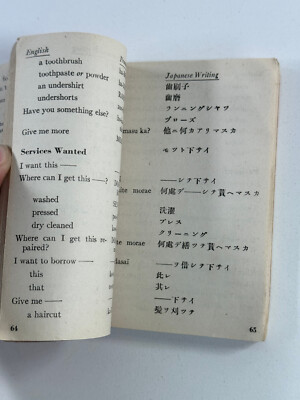 English
a toothbrush
toothpaste or powder
an undershirt
undershorts
Have you something else?
Give me more
Services Wanted
I want this ——
Where can I get this ——?
washed
pressed
dry cleaned
Where can I get this re-
paired?
I want to borrow ——
this
that
Give me ——
a haircut
64
masu ka?
ne morae
ne morae
dasai
Japanese Writing
歯刷子
歯磨
ランニングシャツ
ズローズ
他ニ何カアリマスカ
モツト下サイ
——シテ下サイ
何處デ——シテ貰ヘマスカ
洗濯
プレス
クリーニング
何處デ繕ツテ貰ヘマスカ
——ヲ借シテ下サイ
此レ
其レ
——下サイ
髪ヲ刈ツテ
65